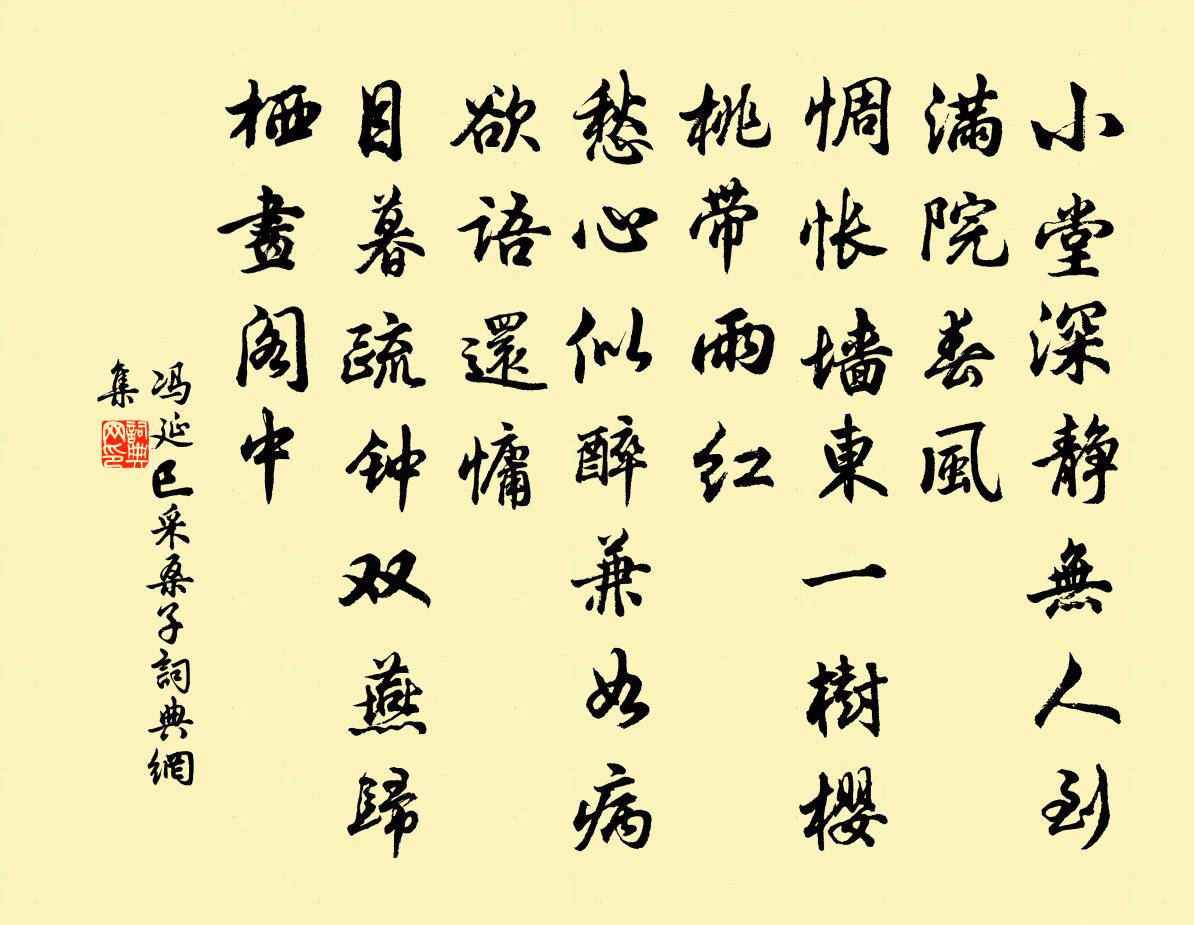 小堂深静無人到
满院春風
惆怅墙東一樹櫻
桃带雨红
愁心似醉兼如病
欲语還慵
目暮疏钟双燕歸
栖畫阁中
冯延巳采桑子詞典網
集
詞典网印